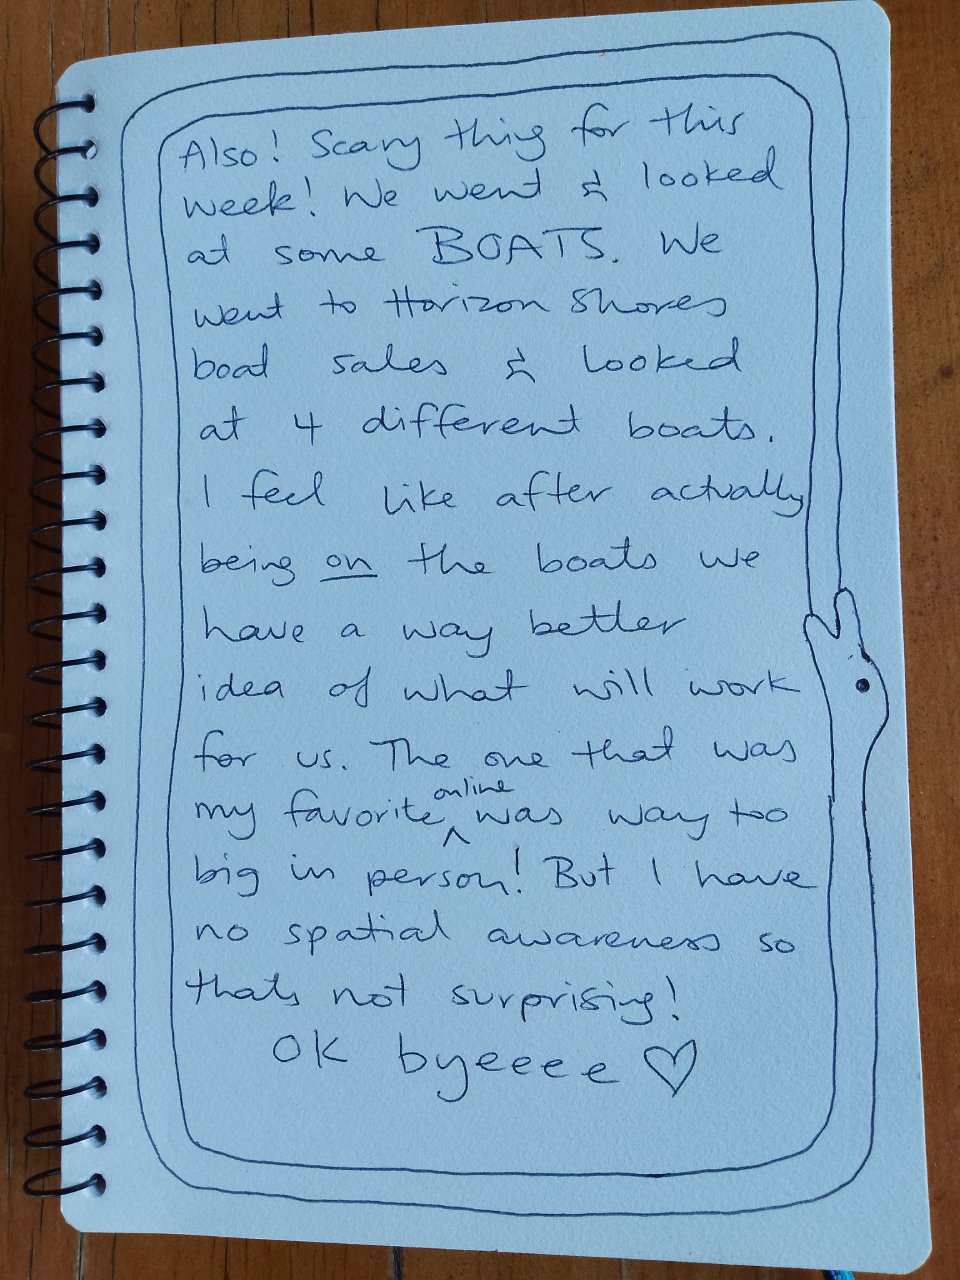 Also! Scary thing for this
week! We went & looked
at some BOATS. We
went to Horizon Shores
boat sales & looked
at 4 different boats.
I feel like after actually
being on the boats we
have a way better
idea of what will work
for us. The one that was
my favorite online was way too
big in person! But I have
no spatial awareness so
thats not surprising!
OK byeeee ♡